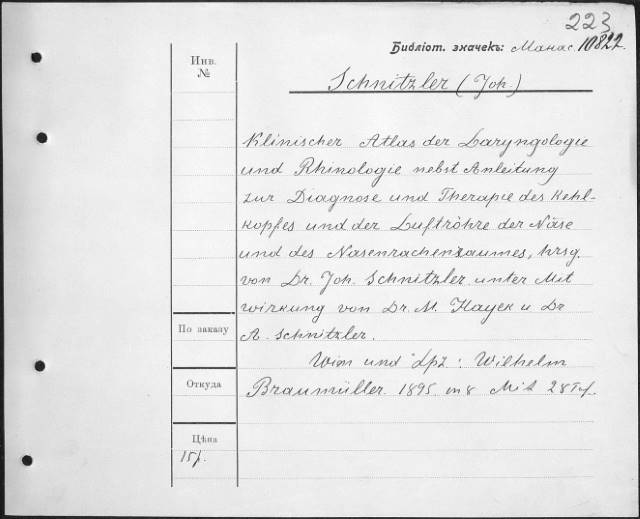 223
Библіот. значекъ: Манас. 10822.
Инв.
№
Schnitzler (Joh.)
Klinischer Atlas der Laryngologie
und Rhinologie nebst Anleitung
zur Diagnose und Therapie des Kehl-
kopfes und der Luftröhre der Näse
und des Nasenrachenraumes, hrsg.
von Dr. Joh. Schnitzler unter Mit
wirkung von Dr. M. Hayek u Dr
A. Schnitzler.
По заказу
Wien und Lpz: Wilhelm
Откуда
Braumüller. 1895. in 8 Mit 28 Tf.
Цѣна
15р.